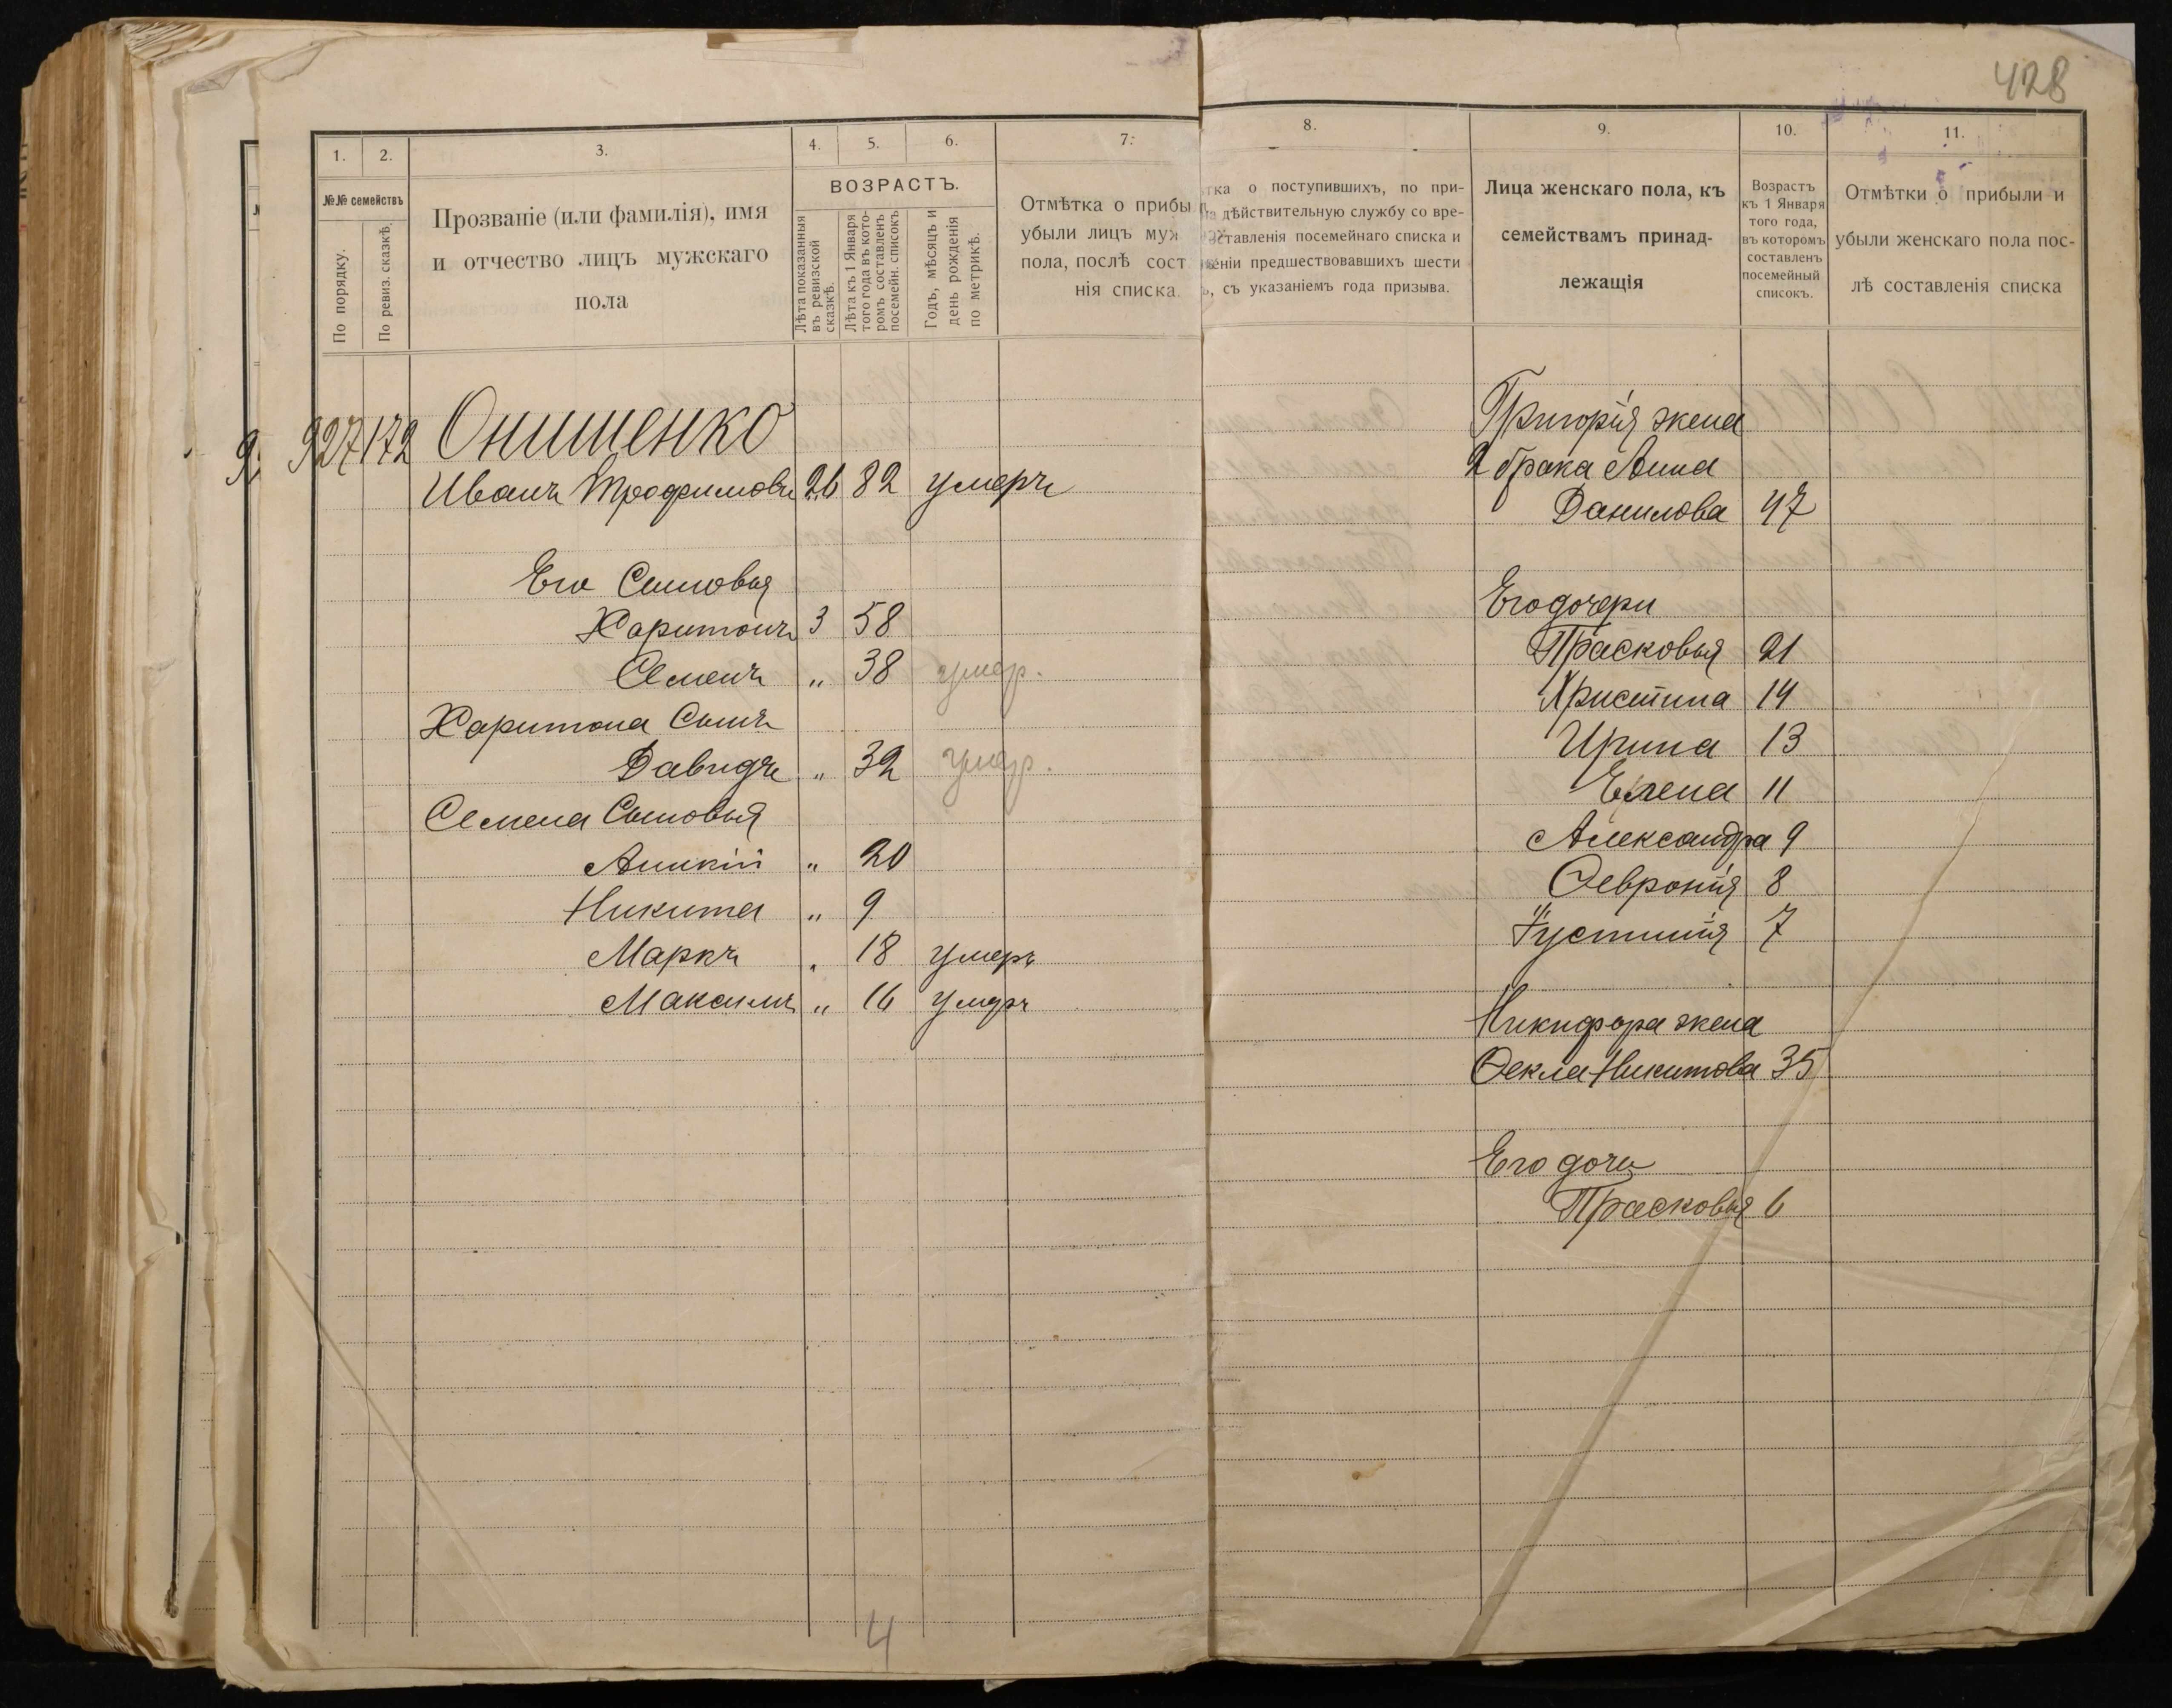 428
1.
2.
3.
4.
5.
6.
7.
№№ семействъ
По порядку.
По ревиз. сказкѣ.
Прозваніе (или фамилія), имя
и отчество лицъ мужскаго
пола
ВОЗРАСТЪ.
Лѣта показанныя
въ ревизской
сказкѣ.
Лѣта къ 1 Января
того года въ кото-
ромъ составленъ
посемейн. списокъ
Годъ, мѣсяцъ и
день рожденія
по метрикѣ.
Отмѣтка о прибы
убыли лицъ муж
пола, послѣ сост
нія списка.
927 172 Онишенко
Иванъ Трофимовъ 26 82 умеръ
Его Сыновья
Харитонъ 3 58
Семенъ „ 38 умер.
Харитона Сынъ
Давидъ „ 32 умер.
Семена Сыновья
Аникій „ 20
Никита „ 9
Маркъ „ 18 умеръ
Максимъ „ 16 умеръ
4
8.
9.
10.
11.
тка о поступившихъ, по при-
на дѣйствительную службу со вре-
оставленія посемейнаго списка и
еніи предшествовавшихъ шести
ъ, съ указаніемъ года призыва.
Лица женскаго пола, къ
семействамъ принад-
лежащія
Возрастъ
къ 1 Января
того года,
въ которомъ
составленъ
посемейный
списокъ.
Отмѣтки о прибыли и
убыли женскаго пола пос-
лѣ составленія списка
Григорія жена
2 брака Анна
Данилова 47
Его дочери
Прасковья 21
Христина 14
Ирина 13
Елена 11
Александра 9
Февронія 8
Устинія 7
Никифора жена
Фекла Никитова 35
Его дочь
Прасковья 6